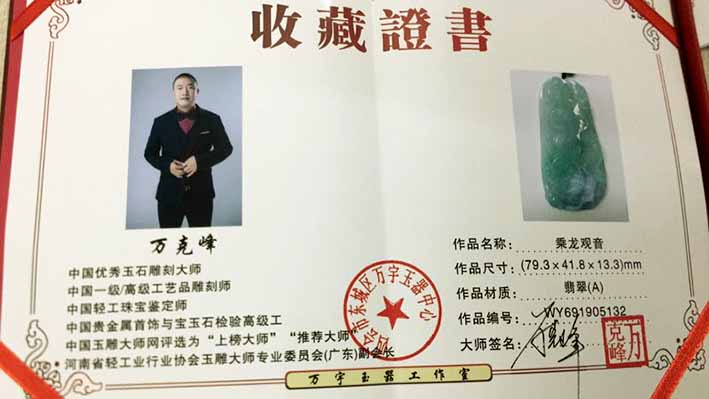 收藏證書
万克峰
中国优秀玉石雕刻大师
中国一级/高级工艺品雕刻师
中国轻工珠宝鉴定师
中国贵金属首饰与宝玉石检验高级工
中国玉雕大师网评选为“上榜大师”“推荐大师”
河南省轻工业行业协会玉雕大师专业委员会(广东)副会长
会市东城区万宇玉器中心
作品名称：乘龙观音
作品尺寸：(79.3×41.8×13.3)mm
作品材质：翡翠(A)
作品编号：WY691905132
大师签名：
万克峰
万宇玉器工作室